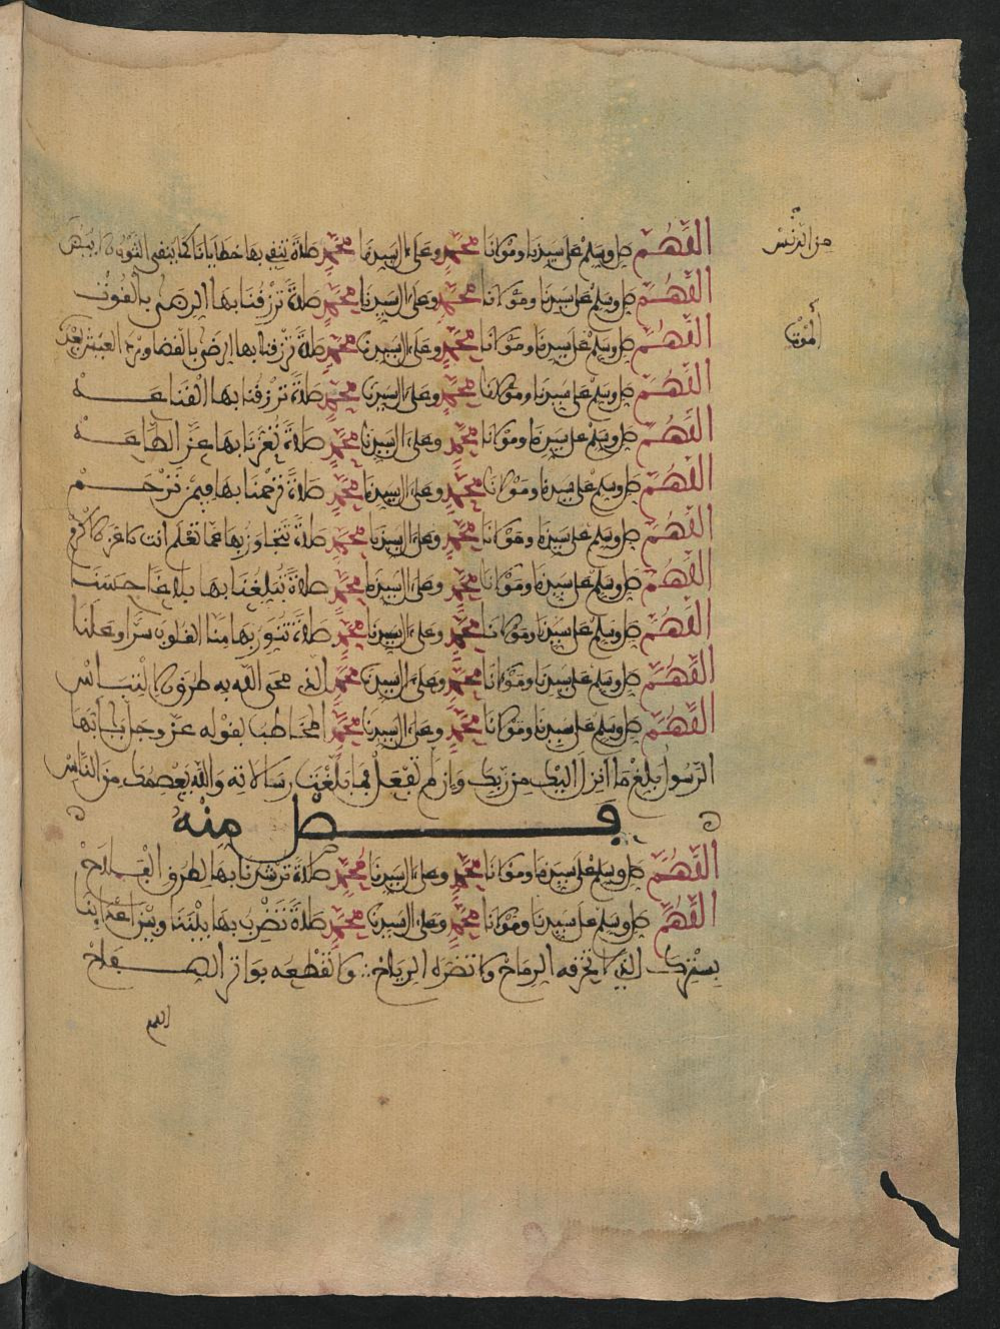 اللَّهُمَّ صل وسلم على سيدنا ومولانا محمد وعلى ءال سيدنا محمد صلاة تنقي بها خطايانا كما ينقى الثوب الابيض
من الدنس
اللَّهُمَّ صل وسلم على سيدنا ومولانا محمد وعلى ءال سيدنا محمد صلاة ترزقنا بها الرضى بالقوت
اللَّهُمَّ صل وسلم على سيدنا ومولانا محمد وعلى ءال سيدنا محمد صلاة ترزقنا بها الرضى بالقضا وبرد العيش بعد
الموت
اللَّهُمَّ صل وسلم على سيدنا ومولانا محمد وعلى ءال سيدنا محمد صلاة ترزقنا بها القناعه
اللَّهُمَّ صل وسلم على سيدنا ومولانا محمد وعلى ءال سيدنا محمد صلاة تعزنا بها عز الطاعه
اللَّهُمَّ صل وسلم على سيدنا ومولانا محمد وعلى ءال سيدنا محمد صلاة ترحمنا بها فيمن ترحم
اللَّهُمَّ صل وسلم على سيدنا ومولانا محمد وعلى ءال سيدنا محمد صلاة تتجاوز بها عما تعلم انت الاعز الاكرم
اللَّهُمَّ صل وسلم على سيدنا ومولانا محمد وعلى ءال سيدنا محمد صلاة تبلغنا بها بلاغا حسنا
اللَّهُمَّ صل وسلم على سيدنا ومولانا محمد وعلى ءال سيدنا محمد صلاة تنور بها منا القلوب سرا وعلنا
اللَّهُمَّ صل وسلم على سيدنا ومولانا محمد وعلى ءال سيدنا محمد الذي محى الله به طرق الالتباس
اللَّهُمَّ صل وسلم على سيدنا ومولانا محمد وعلى ءال سيدنا محمد المخاطب بقوله عز وجل يا ايها
الرسول بلغ ما انزل اليك من ربك وان لم تفعل فما بلغت رسالاته والله يعصمك من الناس
فصل منه
اللَّهُمَّ صل وسلم على سيدنا ومولانا محمد وعلى ءال سيدنا محمد صلاة ترشدنا بها لطرق الفلاح
اللَّهُمَّ صل وسلم على سيدنا ومولانا محمد وعلى ءال سيدنا محمد صلاة تضرب بها بيننا وبين اعدائنا
بسترك الذي لا تخرقه الرماح ولا تضره الرياح ولا تقطعه بواتر الصفاح
اللهم